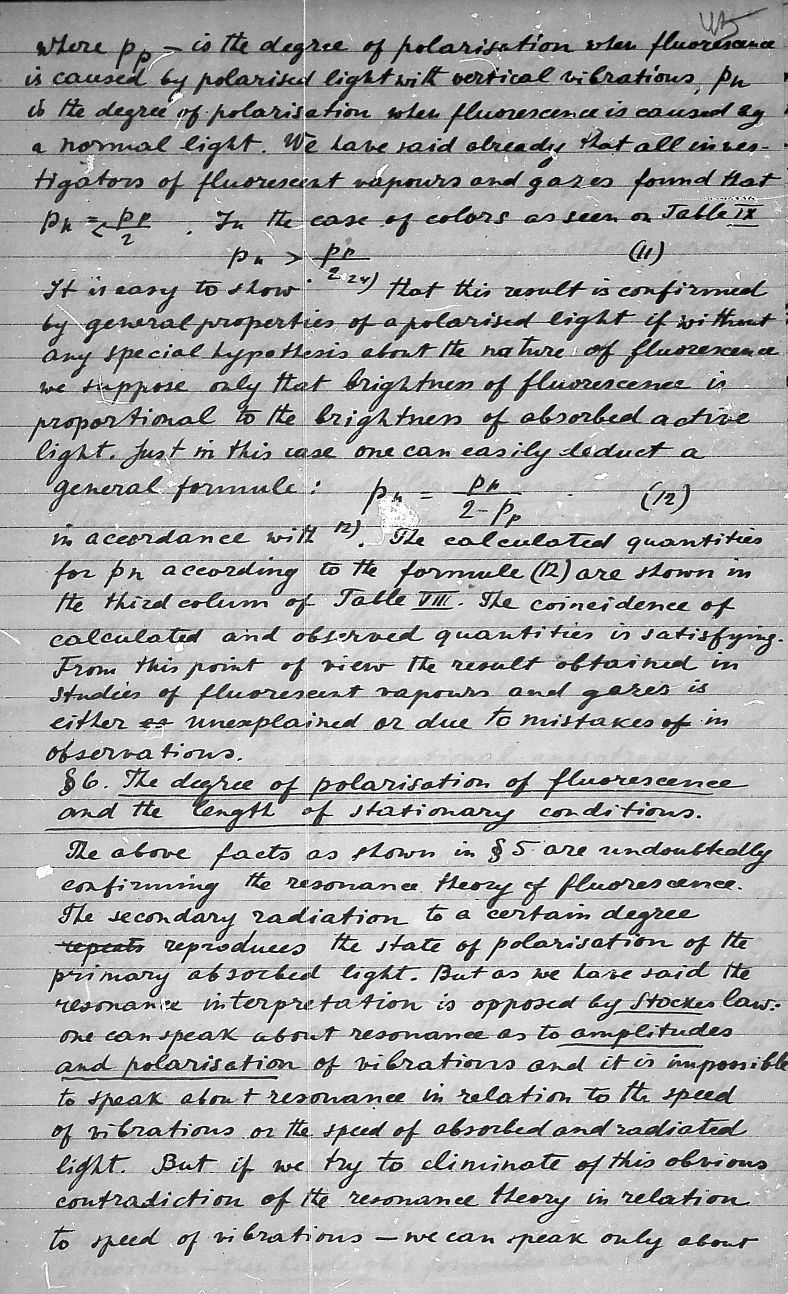 where p_p – is the degree of polarisation when fluorescence
is caused by polarised light with vertical vibrations, p_n
is the degree of polarisation when fluorescence is caused by
a normal light. We have said already that all inves-
tigators of fluorescent vapours and gazes found that
p_n = p_p/2 . In the case of colors as seen on Table IX
p_n > p_p/2 (11)
It is easy to show 24) that this result is confirmed
by general properties of a polarised light if without
any special hypothesis about the nature of fluorescence
we suppose only that brightness of fluorescence is
proportional to the brightness of absorbed active
light. Just in this case one can easily deduct a
general formule: p_n = p_p/2-p_p (12)
in accordance with 12). The calculated quantities
for p_n according to the formule (12) are shown in
the third colum of Table VIII. The coincidence of
calculated and observed quantities is satisfying.
From this point of view the result obtained in
studies of fluorescent vapours and gazes is
either unexplained or due to mistakes of in
observations.
§6. The degree of polarisation of fluorescence
and the length of stationary conditions.
The above facts as shown in §5 are undoubtedly
confirming the resonance theory of fluorescence.
The secondary radiation to a certain degree
repeats reproduces the state of polarisation of the
primary absorbed light. But as we have said the
resonance interpretation is opposed by Stockes law:
one can speak about resonance as to amplitudes
and polarisation of vibrations and it is impossible
to speak about resonance in relation to the speed
of vibrations or the speed of absorbed and radiated
light. But if we try to eliminate of this obvious
contradiction of the resonance theory in relation
to speed of vibrations – we can speak only about